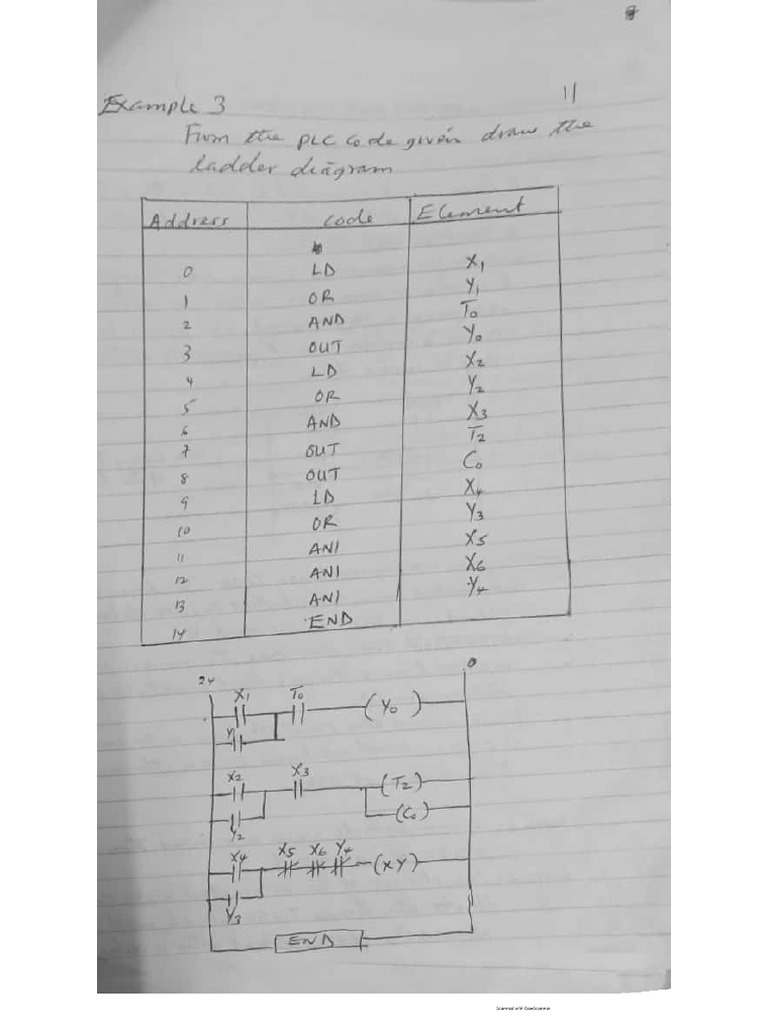 8
11
Example 3
From the PLC code given draw the
ladder diagram
Address code Element
0 LD X1
1 OR Y1
2 AND T0
3 OUT Y0
4 LD X2
5 OR Y2
6 AND X3
7 OUT T2
8 OUT C0
9 LD X4
10 OR Y3
11 ANI X5
12 ANI X6
13 ANI Y4
14 END
24 0
X1 T0
(Y0)
Y1
X2 X3
(T2)
(C0)
Y2
X4 X5 X6 Y4
(XY)
Y3
END
Scanned with CamScanner